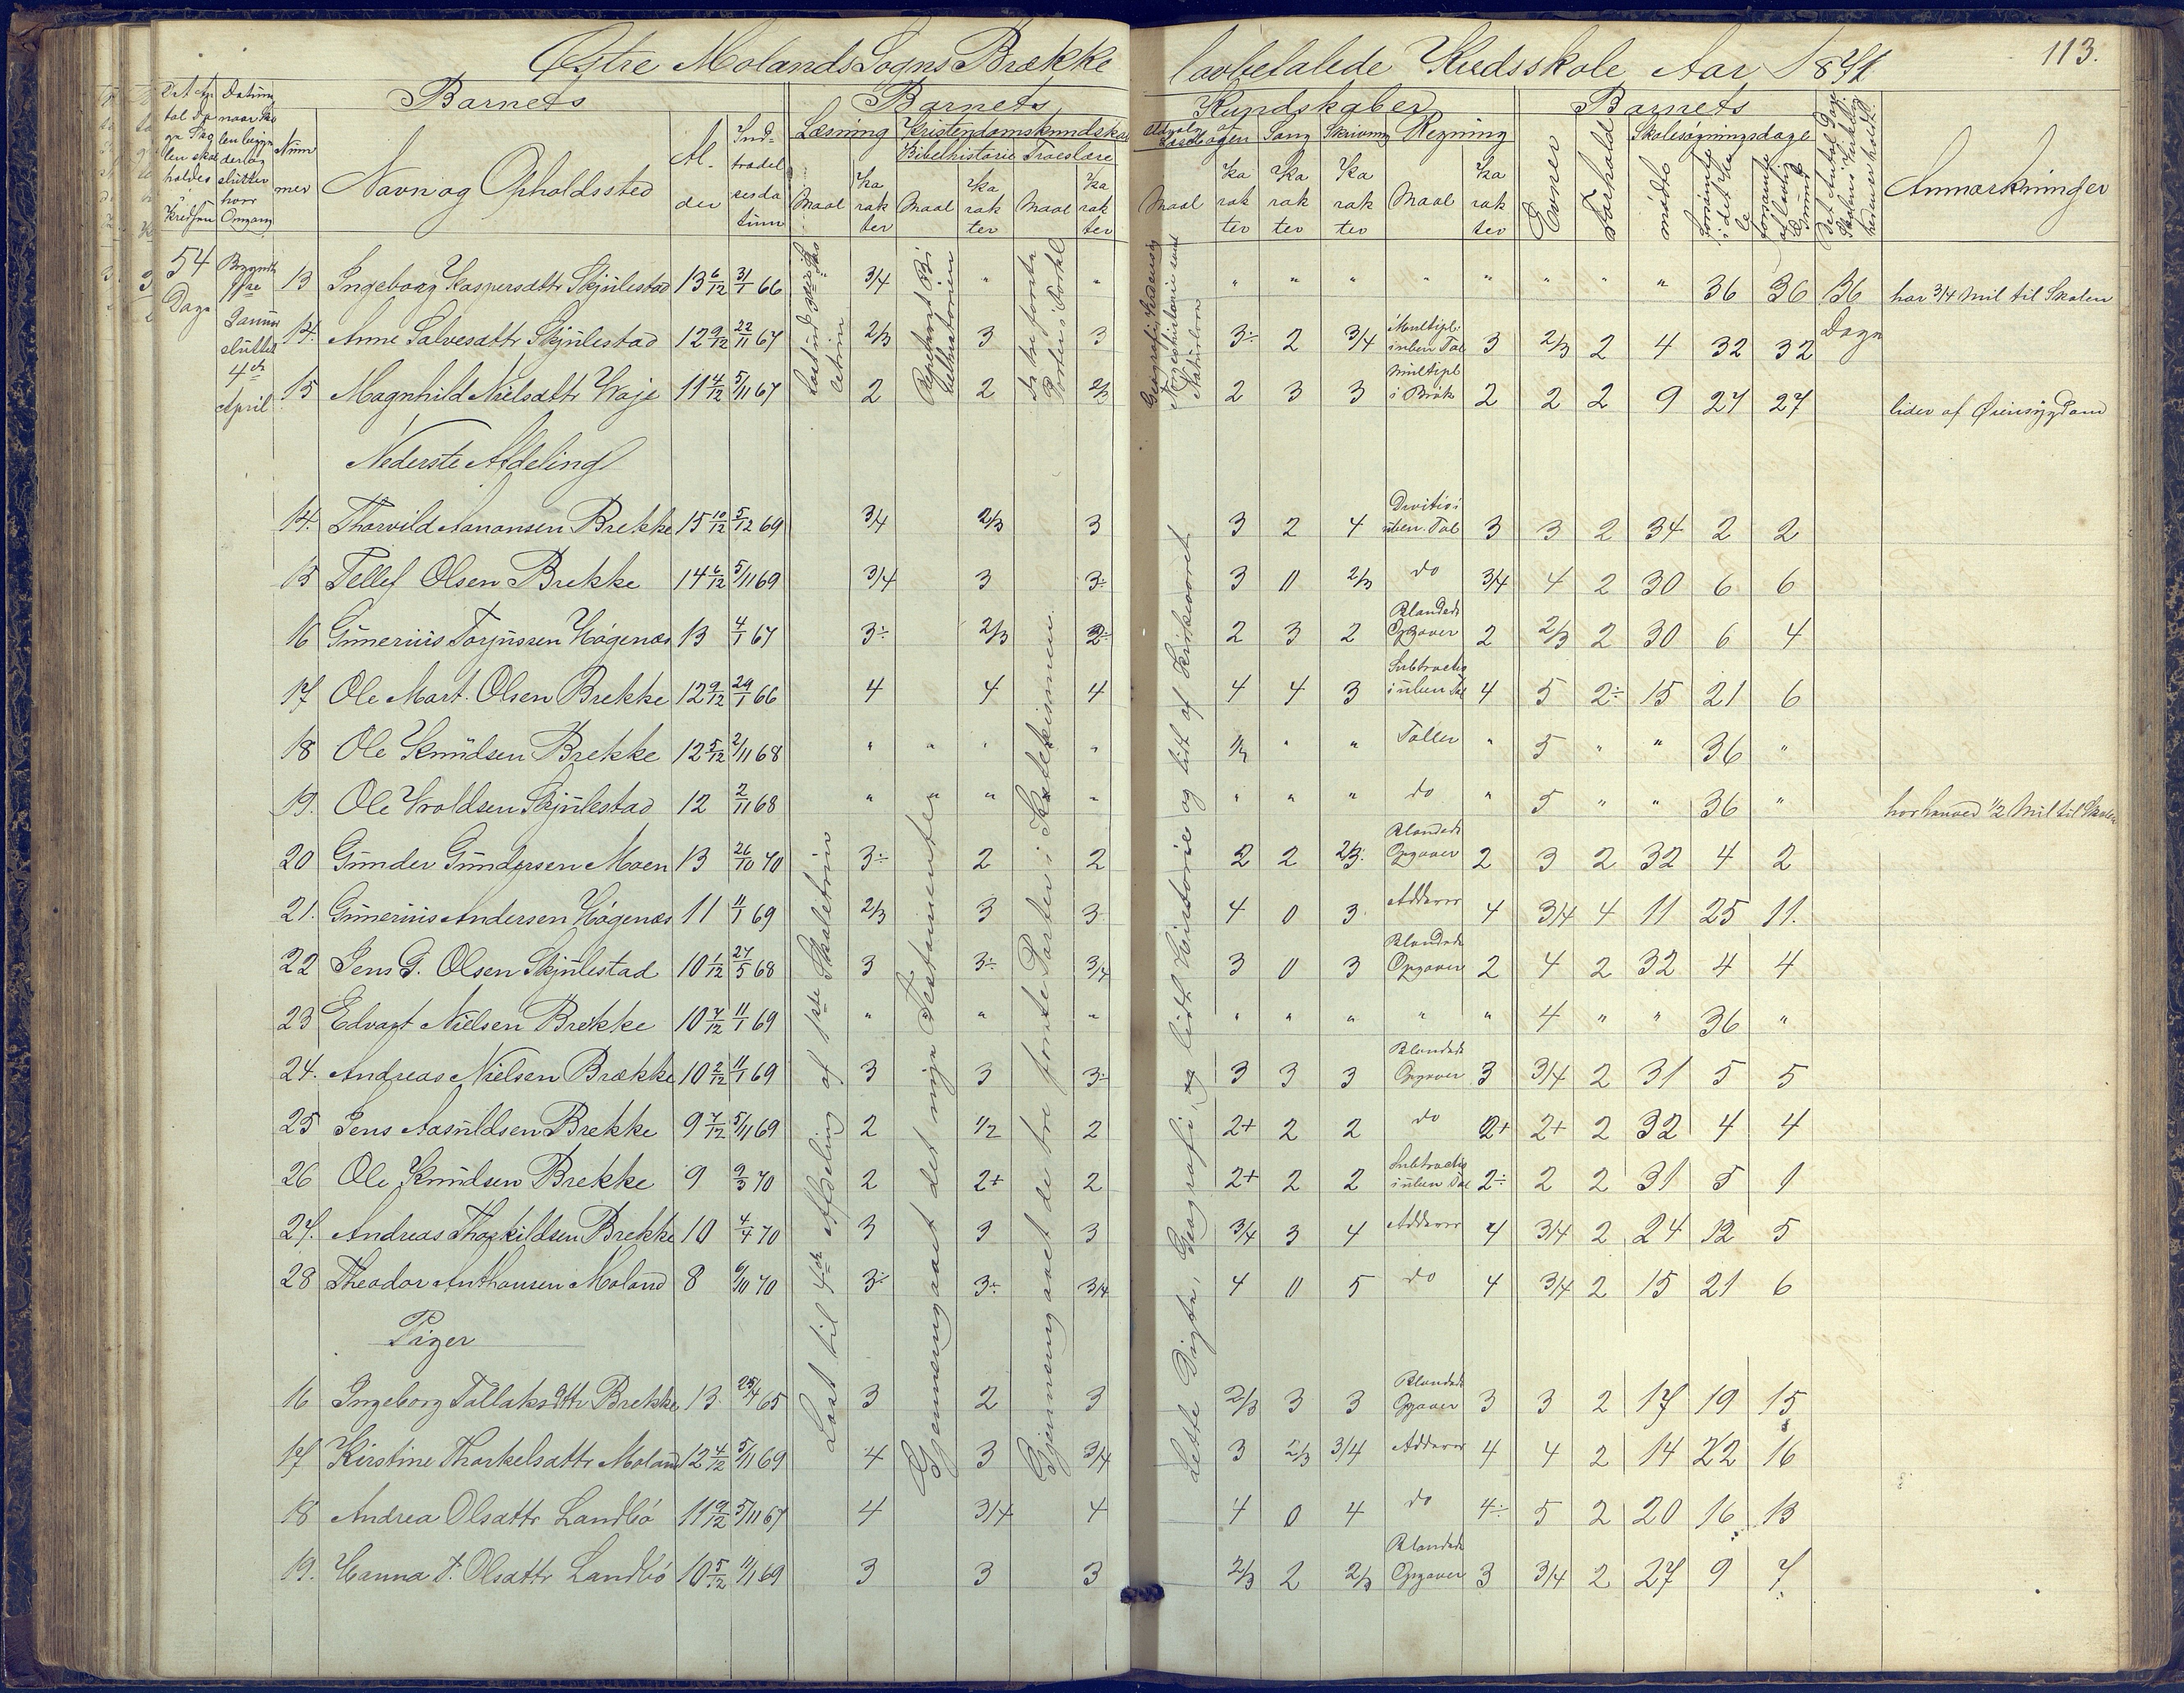 113.
Østre Molands Sogns Brække lovbefalede Kredsskole Aar 1871
Barnets Barnets Kundskaber Barnets
Nummer Navn og Opholdssted Alder Indtrædelsesdatum Læsning Kristendomskundskab Sang Skrivning Regning Evner Forhold Skolesøgningsdage Anmærkninger
Bibelhistorie Troeslære mødte
Maal Karakter Maal Karakter Maal Karakter Maal Karakter Karakter Karakter Maal Karakter
54 Dage
Begyndte
Januar sluttet 4de April
13 Ingeborg Kaspersdttr Skjulestad 13 6/12 31/1 66 3/4 " " " " " " " " " " 36 36 36 Dage har 3/4 Mil til Skolen
14. Anne Salvesdttr Skjulestad 12 9/12 22/11 67 2/3 3 3 3÷ 2 3/4 Multipl. i uben Tal 3 2/3 2 4 32 32
15 Magnhild Nielsdttr Haje 11 4/12 5/11 67 2 2 2/3 2 3 3 Multipl i Brøk 2 2 2 9 27 27 lider af Øiensygdom
Nederste Afdeling
14. Thorvild Aanonsen Brekke 15 10/12 5/12 69 3/4 2/3 3 3 2 4 Divisio i uben. Tal 3 3 2 34 2 2
15 Tellef Olsen Brekke 14 6/12 5/11 69 3/4 3 3÷ 3 0 2/3 do 3/4 4 2 30 6 6
16 Gunerius Torjussen Høgenæs 13 4/1 67 3÷ 2/3 2÷ 2 3 2 Blandede Opgaver 2 2/3 2 30 6 4
17 Ole Mart. Olsen Brekke 12 9/12 29/1 66 4 4 4 4 4 3 Subtractio i uben Tal 4 5 2÷ 15 21 6
18 Ole Knudsen Brekke 12 5/12 2/11 68 " " " " 1/2 " " Taller " 5 " " 36 "
19. Ole Vroldsen Skjulestad 12 2/11 68 " " " " " " " do " 5 " " 36 " har henved 1/2 Mil til Skolen
20 Gunder Gundersen Moen 13 26/10 70 3÷ 2 2 2 2 2/3. Blandede Opgaver 2 3 2 32 4 2
21. Gunerius Andersen Høgenæs 11 11/1 69 2/3 3 3 4 0 3 Adderer 4 3/4 4 11 25 11.
22 Jens G. Olsen Skjulestad 10 1/12 27/5 68 3 3÷ 3/4 3 0 3 Blandede Opgaver 2 4 2 32 4 4
23 Edvart Nielsen Brekke 10 7/12 11/1 69 " " " " " " " " 4 " " 36 "
24. Andreas Nielsen Brække 10 2/12 11/1 69 3 3 3÷ 3 3 3 Blandede Opgaver 3 3/4 2 31 5 5
25 Jens Aasuldsen Brekke 9 7/12 5/11 69 2 1/2 2 2+ 2 2 do 2+ 2+ 2 32 4 4
26 Ole Knudsen Brekke 9 9/3 70 2 2+ 2 2+ 2 2 Subtractio i uben Tal 2÷ 2 2 31 5 1
27. Andreas Thorkildsen Brekke 10 4/4 70 3 3 3 3/4 3 4 Adderer 4 3/4 2 24 12 5
28 Theodor Anthonsen Moland 8 6/10 70 3÷ 3÷ 3/4 4 0 5 do 4 3/4 2 15 21 6
Piger
16 Ingeborg Tallaksdttr Brekke 13 25/4 65 3 2 3 2/3 3 3 Blandede Opgaver 3 3 2 17 19 15
17 Kirstine Thorkelsdttr Moland 12 4/12 5/11 69 4 3 3/4 3 2/3 3/4 Adderer 4 4 2 14 22 16
18 Andrea Olsdttr Landbø 11 9/12 5/11 67 4 3/4 4 4 0 4 do 4÷ 5 2 20 16 13
19. Hanna T. Olsdttr Landbø 10 5/12 11/1 69 3 3 3 2/3 2 2/3 Blandede Opgaver 3 3/4 2 27 9 7
Læst til 4de Afdeling af 1ste Skoletrin
Gjennemgaaet det nye Testamente
Gjennemgaaet de tre første Parter i Katekismen
Lette Digte, Geografi, og lidt Historie og lidt af Kirkeaaret